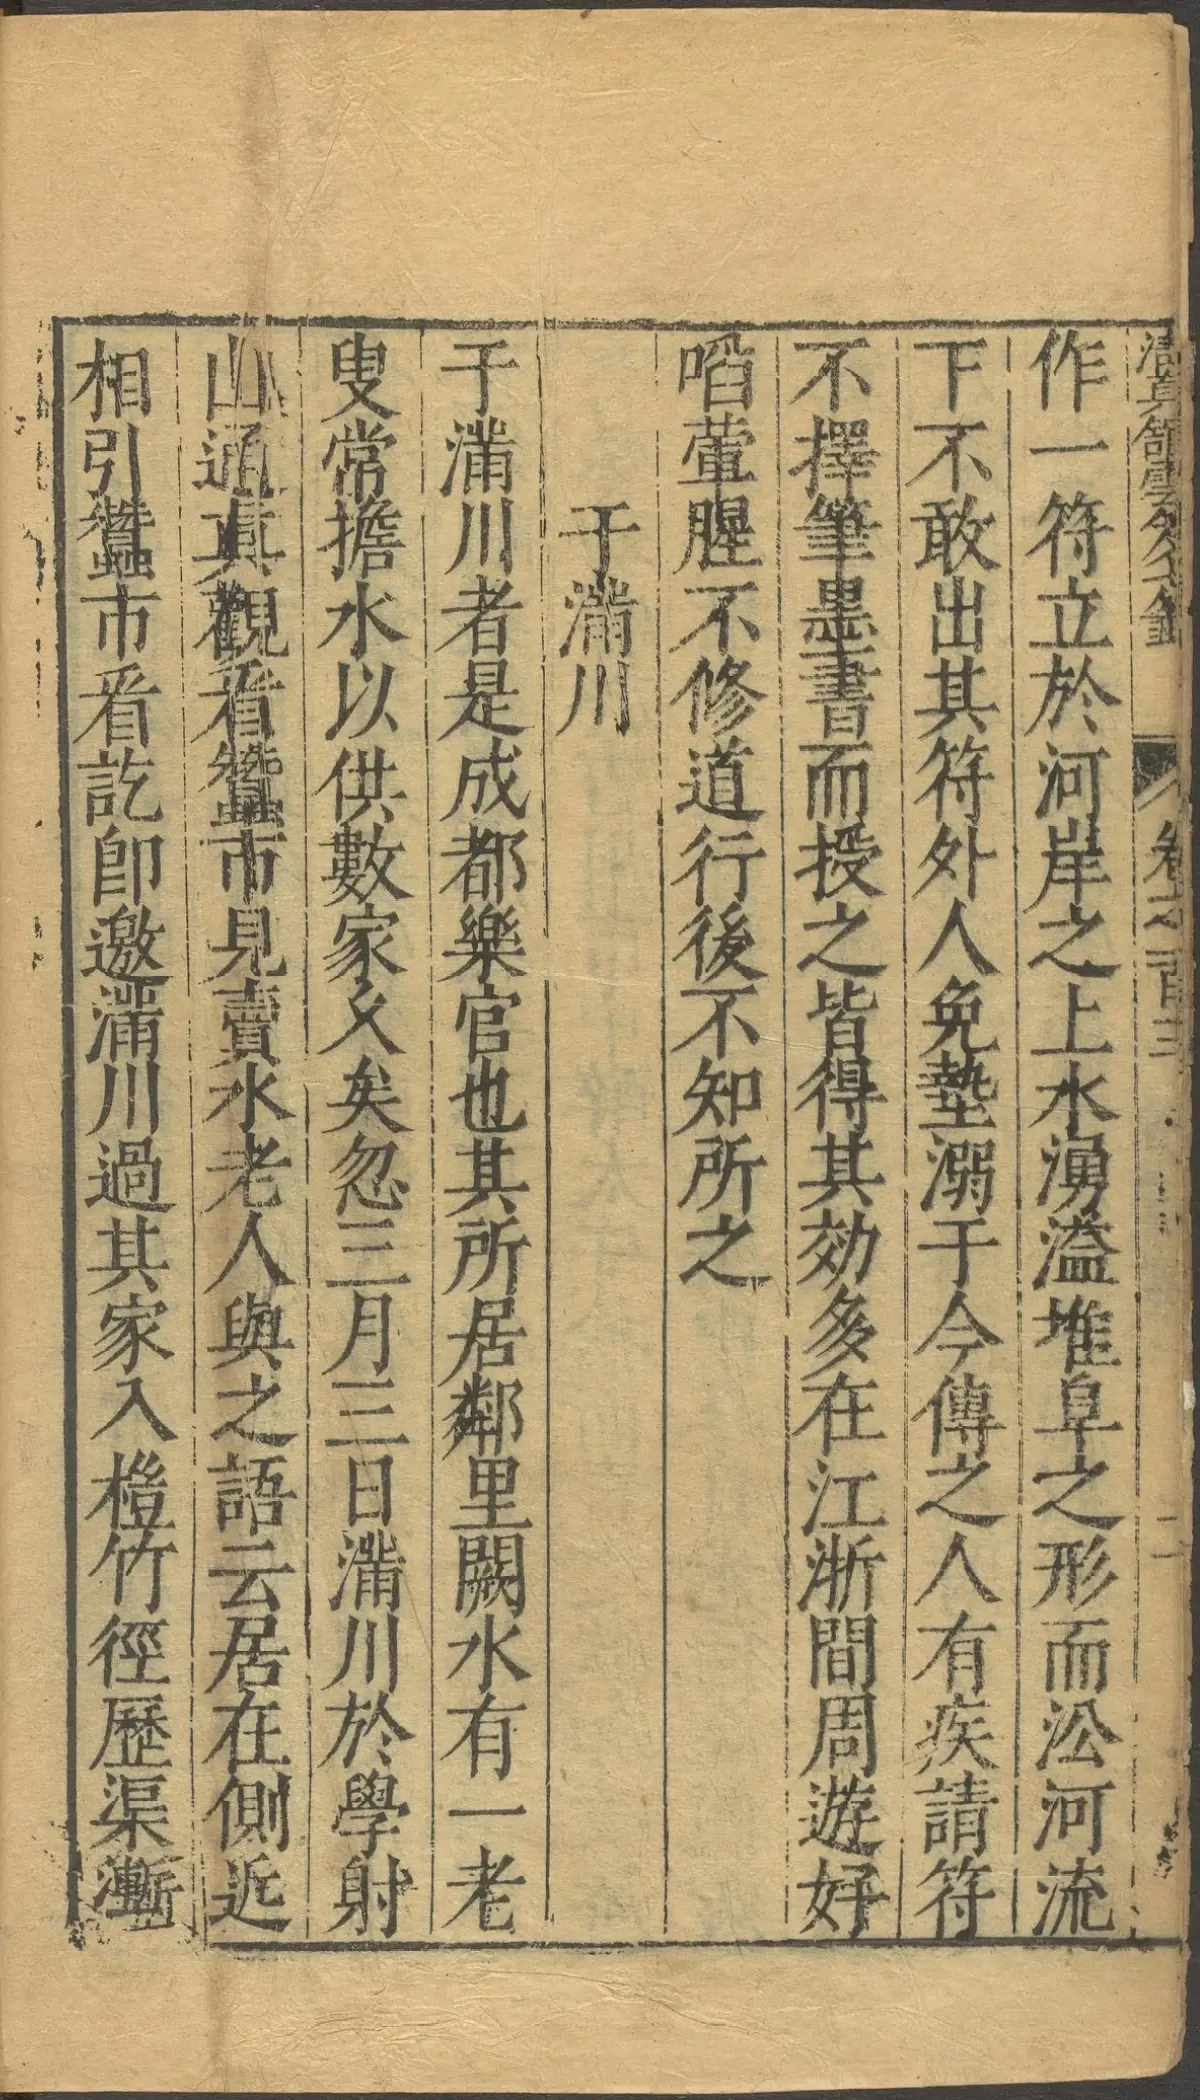 清真館雲笈七籤 卷之一百十三 二
作一符立於河岸之上水湧溢堆阜之形而㳂河流
下不敢出其符外人免墊溺于今傳之人有疾請符
不擇筆墨書而授之皆得其効多在江浙間周遊好
啗葷腥不修道行後不知所之
于滿川
于滿川者是成都樂官也其所居鄰里闕水有一老
叟常擔水以供數家久矣忽三月三日滿川於學射
山通真觀看蠶市見賣水老人與之語云居在側近
相引蠶市看訖即邀滿川過其家入榿竹徑歷渠漸